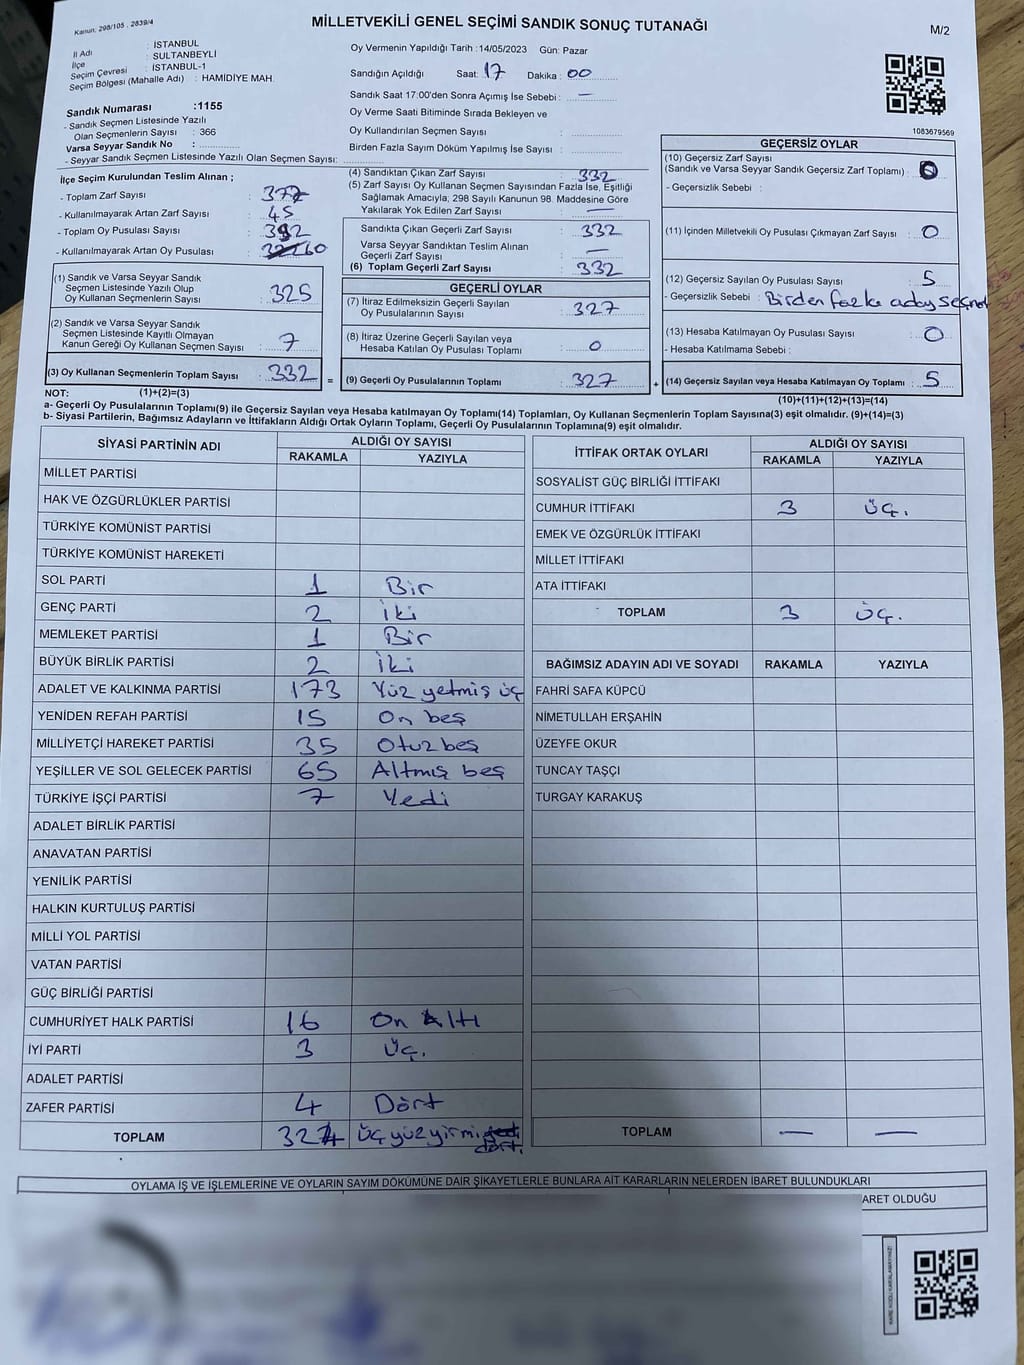 Kanun: 298/105, 2839/4
MİLLETVEKİLİ GENEL SEÇİMİ SANDIK SONUÇ TUTANAĞI
M/2
İl Adı : İSTANBUL
İlçe : SULTANBEYLİ
Seçim Çevresi : İSTANBUL-1
Seçim Bölgesi (Mahalle Adı) : HAMİDİYE MAH.
Oy Vermenin Yapıldığı Tarih : 14/05/2023 Gün: Pazar
Sandığın Açıldığı Saat: 17 Dakika : 00
Sandık Saat 17:00'den Sonra Açımış İse Sebebi : —
Oy Verme Saati Bitiminde Sırada Bekleyen ve
Oy Kullandırılan Seçmen Sayısı :
Birden Fazla Sayım Döküm Yapılmış İse Sayısı :
1083679569
Sandık Numarası :1155
- Sandık Seçmen Listesinde Yazılı
Olan Seçmenlerin Sayısı : 366
Varsa Seyyar Sandık No :
- Seyyar Sandık Seçmen Listesinde Yazılı Olan Seçmen Sayısı:
İlçe Seçim Kurulundan Teslim Alınan ;
- Toplam Zarf Sayısı : 377
- Kullanılmayarak Artan Zarf Sayısı : 45
- Toplam Oy Pusulası Sayısı : 392
- Kullanılmayarak Artan Oy Pusulası : 60
(1) Sandık ve Varsa Seyyar Sandık
Seçmen Listesinde Yazılı Olup
Oy Kullanan Seçmenlerin Sayısı : 325
(2) Sandık ve Varsa Seyyar Sandık
Seçmen Listesinde Kayıtlı Olmayan
Kanun Gereği Oy Kullanan Seçmen Sayısı : 7
(3) Oy Kullanan Seçmenlerin Toplam Sayısı : 332 =
(4) Sandıktan Çıkan Zarf Sayısı : 332
(5) Zarf Sayısı Oy Kullanan Seçmen Sayısından Fazla İse, Eşitliği
Sağlamak Amacıyla; 298 Sayılı Kanunun 98. Maddesine Göre
Yakılarak Yok Edilen Zarf Sayısı : —
Sandıkta Çıkan Geçerli Zarf Sayısı : 332
Varsa Seyyar Sandıktan Teslim Alınan
Geçerli Zarf Sayısı : —
(6) Toplam Geçerli Zarf Sayısı : 332
GEÇERLİ OYLAR
(7) İtiraz Edilmeksizin Geçerli Sayılan
Oy Pusulalarının Sayısı : 327
(8) İtiraz Üzerine Geçerli Sayılan veya
Hesaba Katılan Oy Pusulası Toplamı : 0
(9) Geçerli Oy Pusulalarının Toplamı : 327 +
GEÇERSİZ OYLAR
(10) Geçersiz Zarf Sayısı
(Sandık ve Varsa Seyyar Sandık Geçersiz Zarf Toplamı) : 0
- Geçersizlik Sebebi :
(11) İçinden Milletvekili Oy Pusulası Çıkmayan Zarf Sayısı : 0
(12) Geçersiz Sayılan Oy Pusulası Sayısı : 5
- Geçersizlik Sebebi : Birden fazla aday
(13) Hesaba Katılmayan Oy Pusulası Sayısı : 0
- Hesaba Katılmama Sebebi :
(14) Geçersiz Sayılan veya Hesaba Katılmayan Oy Toplamı : 5
NOT: (1)+(2)=(3) (10)+(11)+(12)+(13)=(14)
a- Geçerli Oy Pusulalarının Toplamı(9) ile Geçersiz Sayılan veya Hesaba katılmayan Oy Toplamı(14) Toplamları, Oy Kullanan Seçmenlerin Toplam Sayısına(3) eşit olmalıdır. (9)+(14)=(3)
b- Siyasi Partilerin, Bağımsız Adayların ve İttifakların Aldığı Ortak Oyların Toplamı, Geçerli Oy Pusulalarının Toplamına(9) eşit olmalıdır.
SİYASİ PARTİNİN ADI ALDIĞI OY SAYISI
RAKAMLA YAZIYLA
MİLLET PARTİSİ
HAK VE ÖZGÜRLÜKLER PARTİSİ
TÜRKİYE KOMÜNİST PARTİSİ
TÜRKİYE KOMÜNİST HAREKETİ
SOL PARTİ 1 Bir
GENÇ PARTİ 2 İki
MEMLEKET PARTİSİ 1 Bir
BÜYÜK BİRLİK PARTİSİ 2 İki
ADALET VE KALKINMA PARTİSİ 173 Yüz yetmiş üç
YENİDEN REFAH PARTİSİ 15 On beş
MİLLİYETÇİ HAREKET PARTİSİ 35 Otuz beş
YEŞİLLER VE SOL GELECEK PARTİSİ 65 Altmış beş
TÜRKİYE İŞÇİ PARTİSİ 7 Yedi
ADALET BİRLİK PARTİSİ
ANAVATAN PARTİSİ
YENİLİK PARTİSİ
HALKIN KURTULUŞ PARTİSİ
MİLLİ YOL PARTİSİ
VATAN PARTİSİ
GÜÇ BİRLİĞİ PARTİSİ
CUMHURİYET HALK PARTİSİ 16 On Altı
İYİ PARTİ 3 Üç.
ADALET PARTİSİ
ZAFER PARTİSİ 4 Dört
TOPLAM 324 Üç yüz yirmi dört.
İTTİFAK ORTAK OYLARI ALDIĞI OY SAYISI
RAKAMLA YAZIYLA
SOSYALİST GÜÇ BİRLİĞİ İTTİFAKI
CUMHUR İTTİFAKI 3 Üç.
EMEK VE ÖZGÜRLÜK İTTİFAKI
MİLLET İTTİFAKI
ATA İTTİFAKI
TOPLAM 3 Üç.
BAĞIMSIZ ADAYIN ADI VE SOYADI RAKAMLA YAZIYLA
FAHRİ SAFA KÜPCÜ
NİMETULLAH ERŞAHİN
ÜZEYFE OKUR
TUNCAY TAŞÇI
TURGAY KARAKUŞ
TOPLAM — —
OYLAMA İŞ VE İŞLEMLERİNE VE OYLARIN SAYIM DÖKÜMÜNE DAİR ŞİKAYETLERLE BUNLARA AİT KARARLARIN NELERDEN İBARET BULUNDUKLARI
ARET OLDUĞU